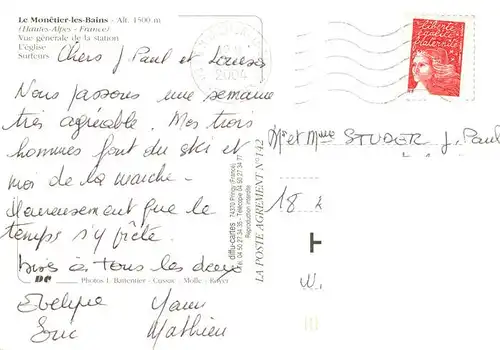 Le Monêtier-les-Bains - Alt. 1500 m
(Hautes-Alpes - France)
Vue générale de la station
L'église
Surteurs
Chers J Paul et Louises
Nous passons une semaine
très agréable. Mes trois
hommes font du ski et
moi de la marche -
Heureusement que le
temps s'y prête.
bises à tous les deux
Photos J. Barrentier - Cussac - Molle - Royer
Evelyne Yann
Loric Mathieu
diffu-cartes 74370 Pringy (France)
Tél 04 50 27 34 35 - Télécopie 04 50 27 34 77
Reproduction interdite
LA POSTE AGREMENT N° 142
2004
liberté
égalité
fraternité
Mr et Mme STUDER J. Paul
18